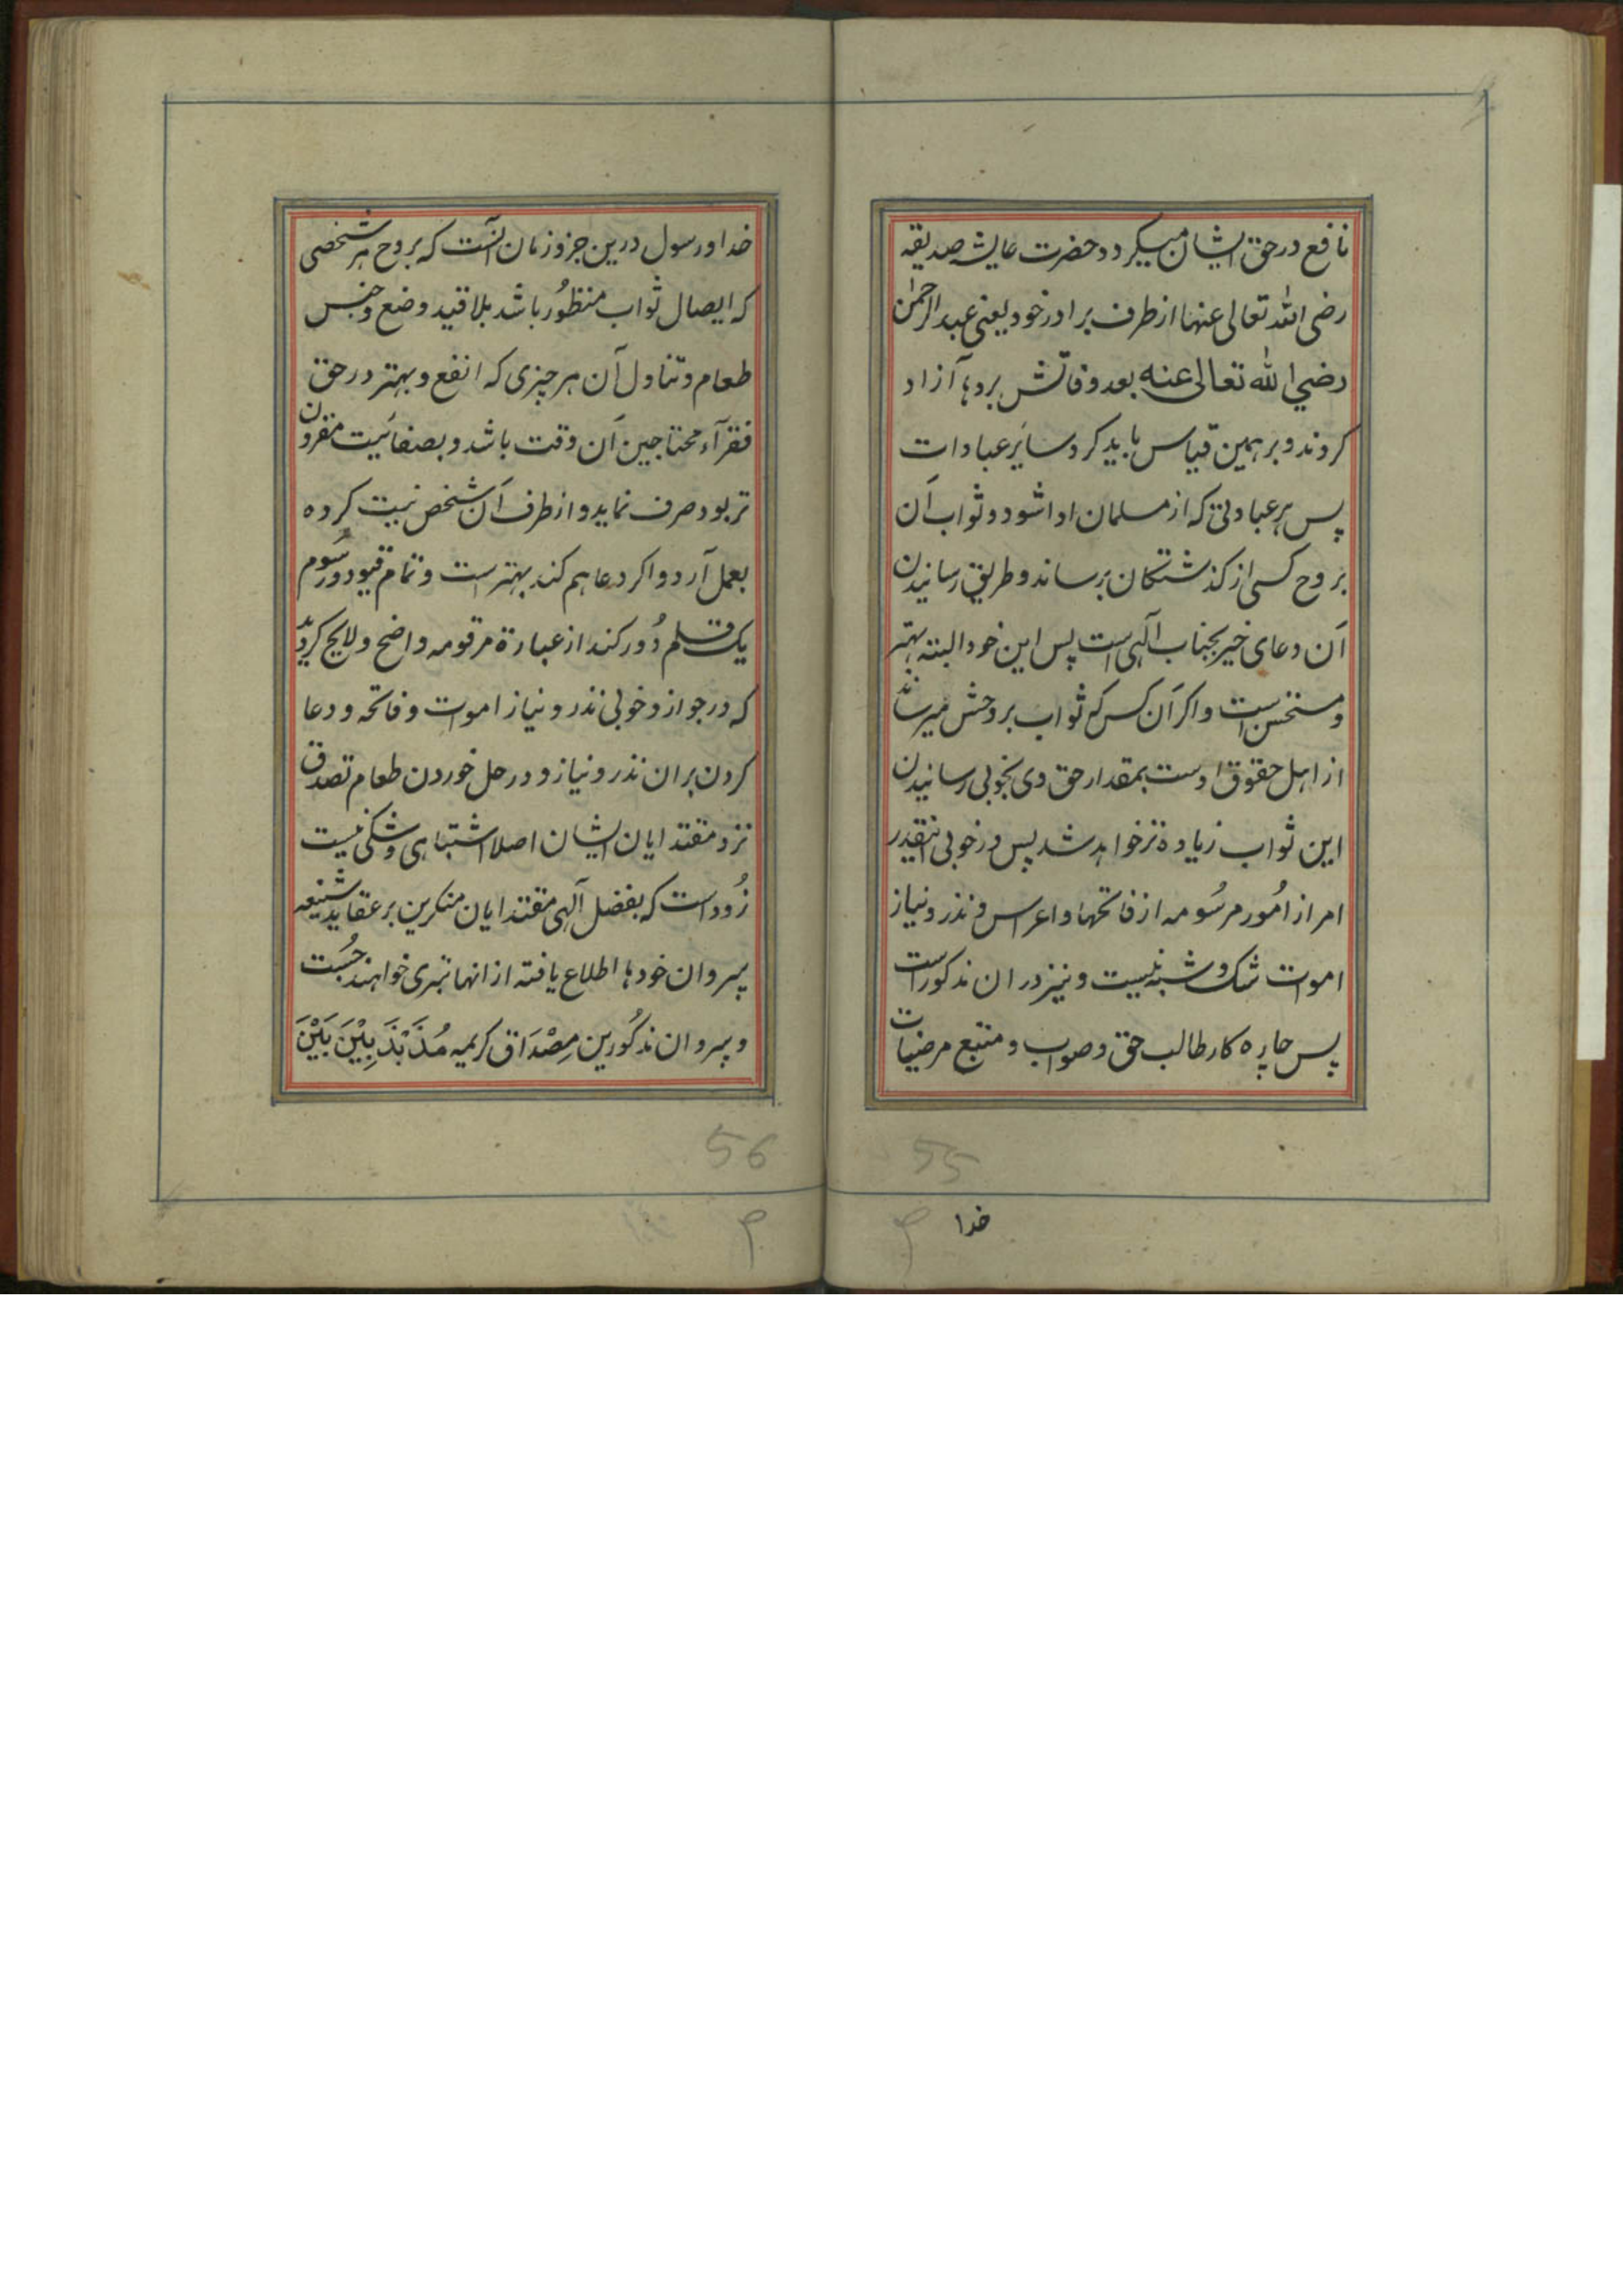 نافع در حق ایشان میکردد حضرت عایشه صدیقه
رضی الله تعالی عنها از طرف برادر خود یعنی عبد الرحمن
رضي الله تعالی عنه بعد وفاتش بردها آزاد
کردند و بر همین قیاس باید کرد سایر عبادات
پس هر عبادتی که از مسلمان ادا شود و ثواب آن
بروح کسی از کذشتکان برساند و طریق رسانیدن
آن دعای خیر بجناب آلهی است پس این خود البته بهتر
و مستحسن است و اکر آن کس که ثواب بروحش میرساند
از اهل حقوق اوست بمقدار حق وی بخوبی رسانیدن
این ثواب زیاده تر خواهد شد پس در خوبی اینقدر
امر از اُمور مرسُومه از فاتحها و اعراس و نذر و نیاز
اموات شک و شبه نیست و نیز در ان مذکور است
پس چاره کار طالب حق و صواب و متبع مرضیات
55
خدا
خدا و رسول درین جزو زمان آنست که بروح هر شخصی
که ایصال ثواب منظُور باشد بلا قید وضع و جنس
طعام و تناول آن هر چیزی که انفع و بهتر در حق
فقرآء محتاجین آن وقت باشد و بصفائیت مقرون
تر بود صرف نماید و از طرف آن شخص نیت کرده
بعمل آرد و اکر دعا هم کند بهتر است و تمام قیود و رسُوم
یک قلم دُور کند از عبارة مرقومه واضح و لایح کردید
که در جواز و خوبی نذر و نیاز اموات و فاتحه و دعا
کردن بران نذر و نیاز و در حل خوردن طعام تصدق
نزد مقتدایان ایشان اصلا اشتباهی و شکی نیست
زُود است که بفضل آلهی مقتدایان منکرین بر عقاید شنیعه
پیروان خودها اطلاع یافته از انها تبری خواهند جُست
و پیروان مذکُورین مِصْدَاق کریمه مُذَبْذَبِیْنَ بَیْنَ
56